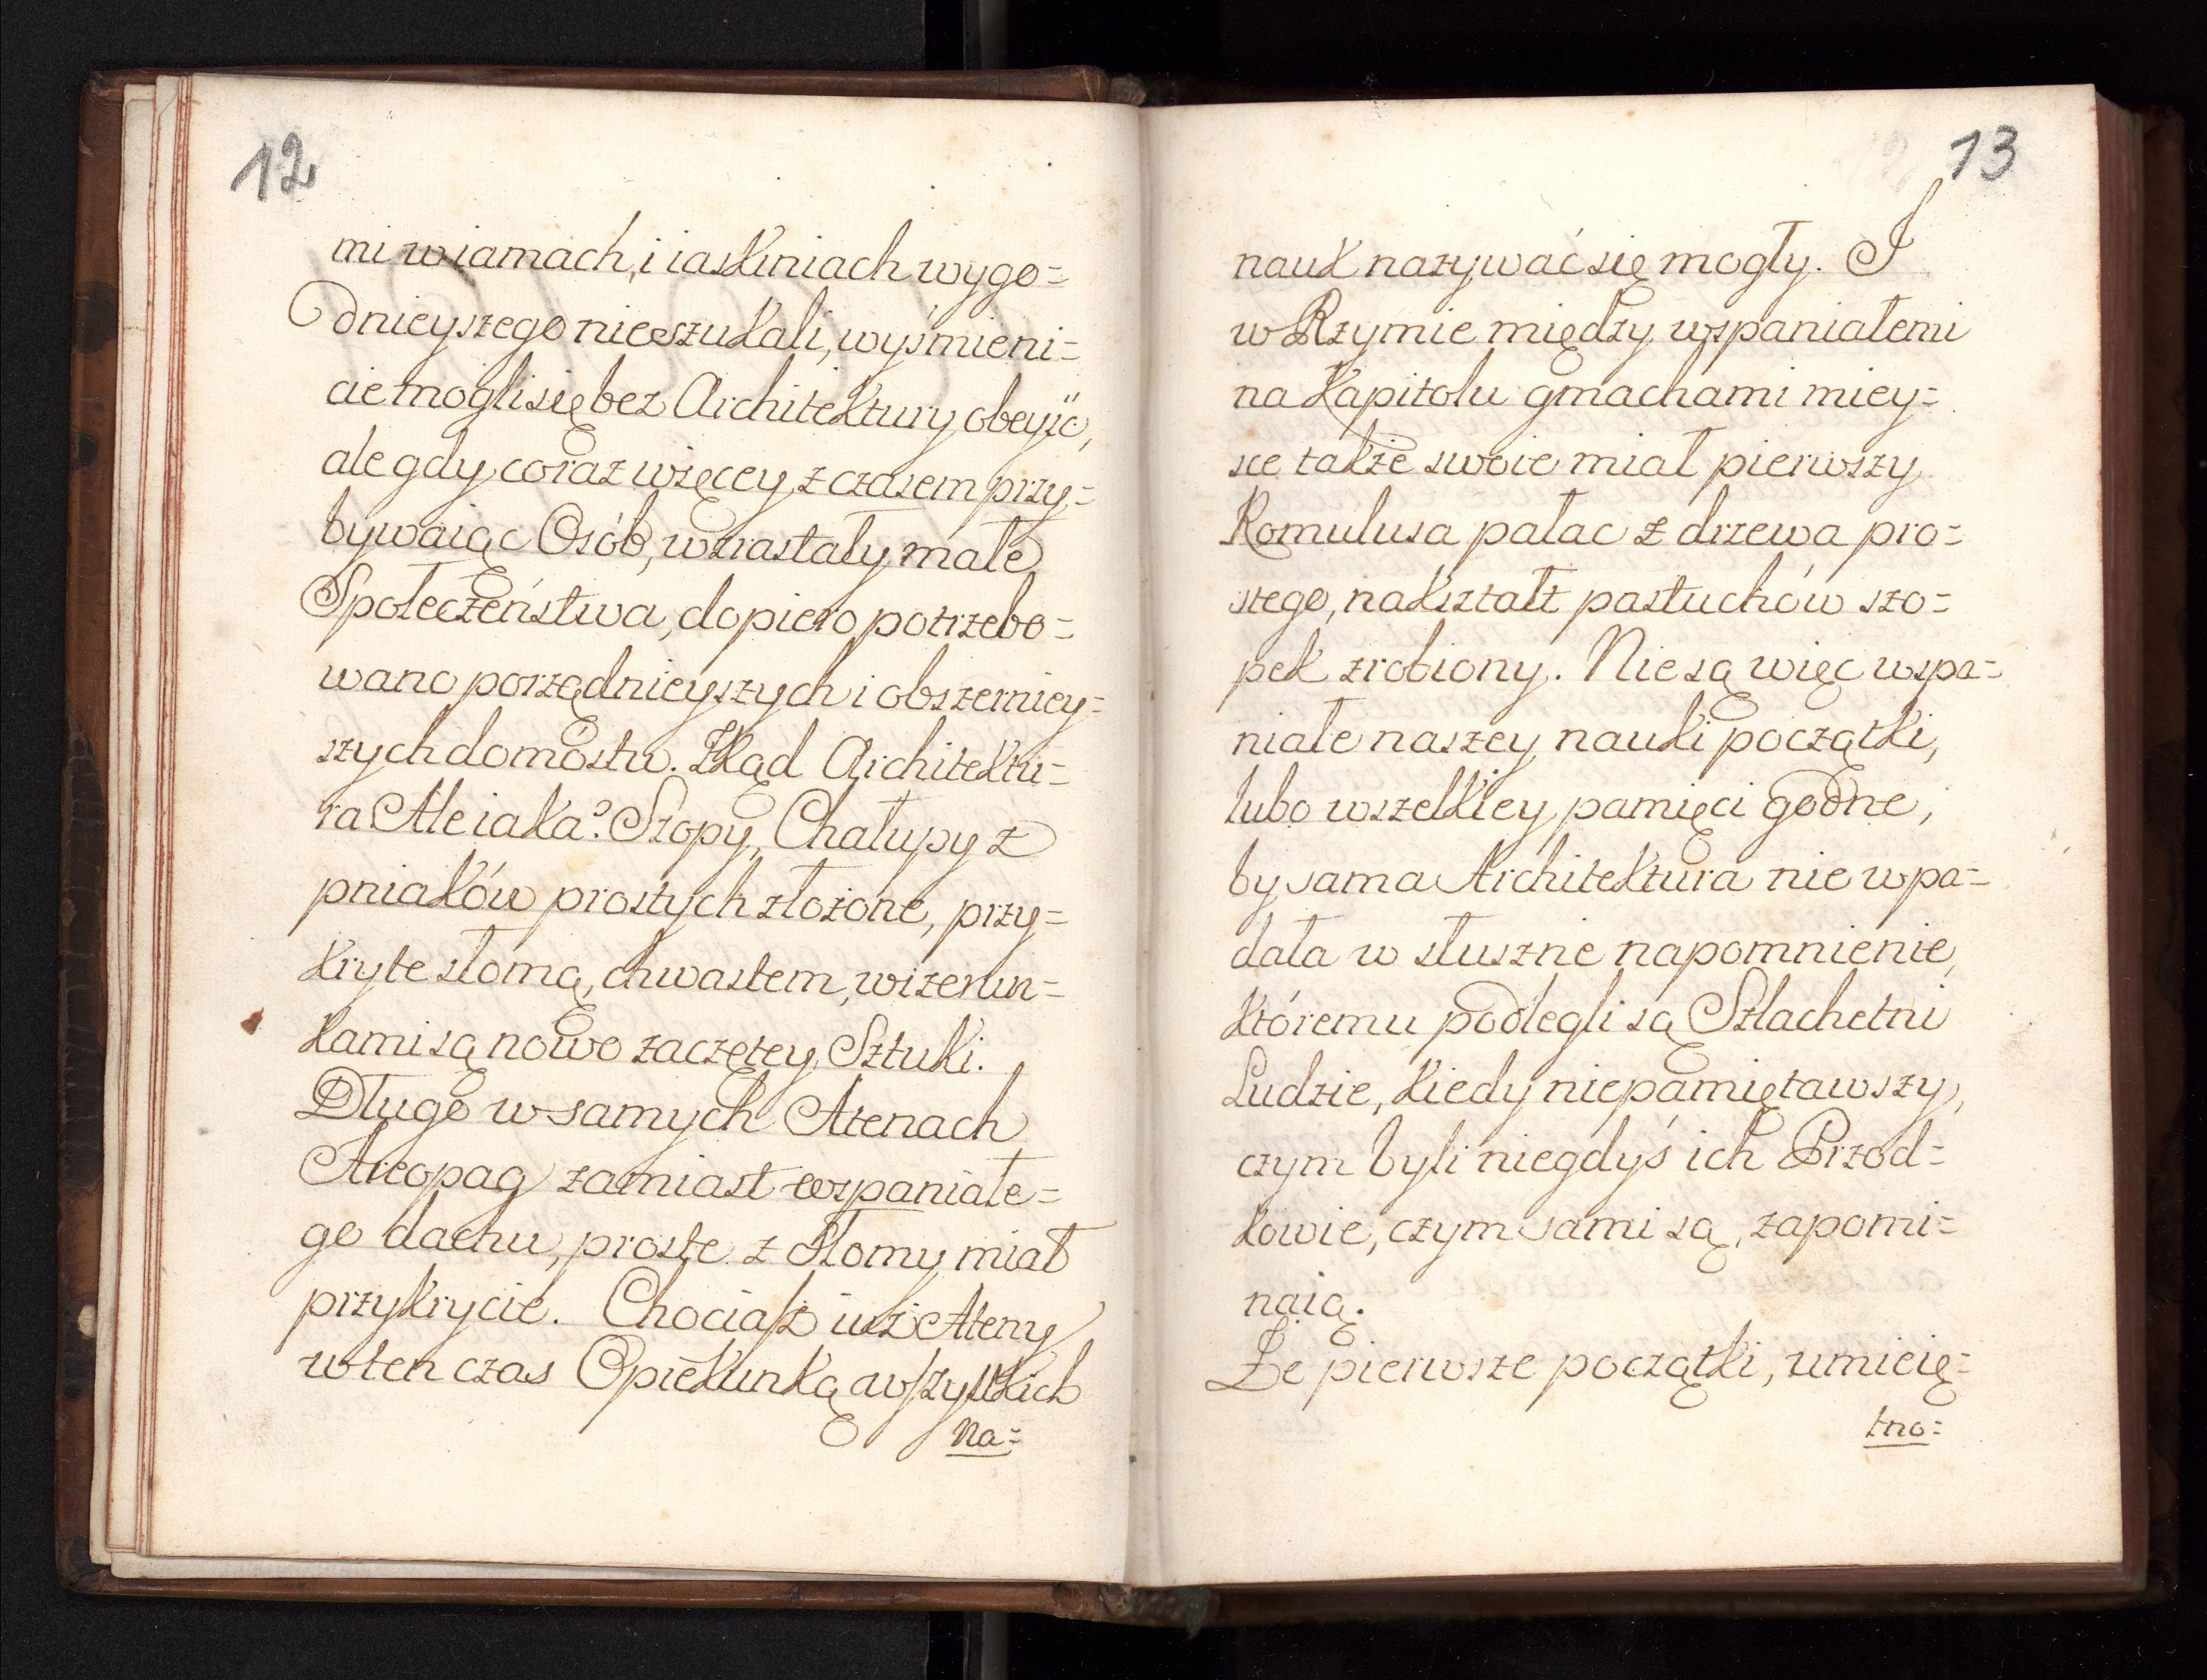 12
mi w iamach, i iaskiniach wygo=
dnieyszego nieszukali, wyśmieni=
cie mogli się bez Architektury obeyść,
ale gdy coraz więcey z czasem przy=
bywaiąc Osób, wzrastały małe
Społeczeństwa, dopiero potrzebo=
wano porządnieyszych i obszerniey=
szych domostw. Zkąd Architektu=
ra Ale iaka? Szopy, Chałupy z
pniaków prostych złożone, przy=
kryte słomą, chwastem, wizerun=
kami są nowo zaczętey Sztuki.
Długo w samych Atenach
Areopag zamiast wspaniałe=
go dachu, proste z słomy miał
przykrycie. Chociaſz iuż Ateny
w ten czas Opiekunką wſzystkich
Na=
13
nauk nazywać się mogły. I
w Rzymie między wspaniałemi
na Kapitolu gmachami miey=
sce także swoie miał pierwszy
Romulusa pałac z drzewa pro=
stego, nakształt pastuchów szo=
pek zrobiony. Nie są więc wspa=
niałe naszey nauki początki,
lubo wszelkiey pamięci godne,
by sama Architektura nie wpa=
dała w słuszne napomnienie,
któremu podlegli są Szlachetni
Ludzie, kiedy niepamiętawszy,
czym byli niegdyś ich Przod=
kowie, czym sami są, zapomi=
naią.
Że pierwsze początki, umieię=
tno=